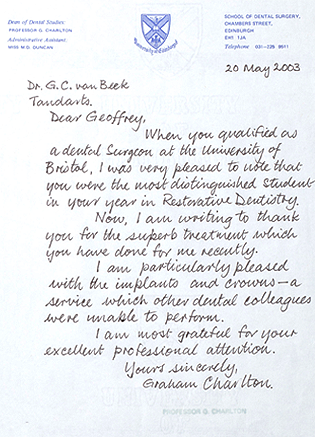 Dean of Dental Studies:
PROFESSOR G. CHARLTON
Administrative Assistant:
MISS M.D. DUNCAN
University of Edinburgh
SCHOOL OF DENTAL SURGERY,
CHAMBERS STREET,
EDINBURGH
EH1 1JA
Telephone 031-225 9511
20 May 2003
Dr. G.C. van Beek
Tandarts.
Dear Geoffrey,
When you qualified as
a dental Surgeon at the University of
Bristol, I was very pleased to note that
you were the most distinguished student
in your year in Restorative Dentistry.
Now, I am writing to thank
you for the superb treatment which
you have done for me recently.
I am particularly pleased
with the implants and crowns – a
service which other dental colleagues
were unable to perform.
I am most grateful for your
excellent professional attention.
Yours sincerely,
Graham Charlton.
PROFESSOR G. CHARLTON